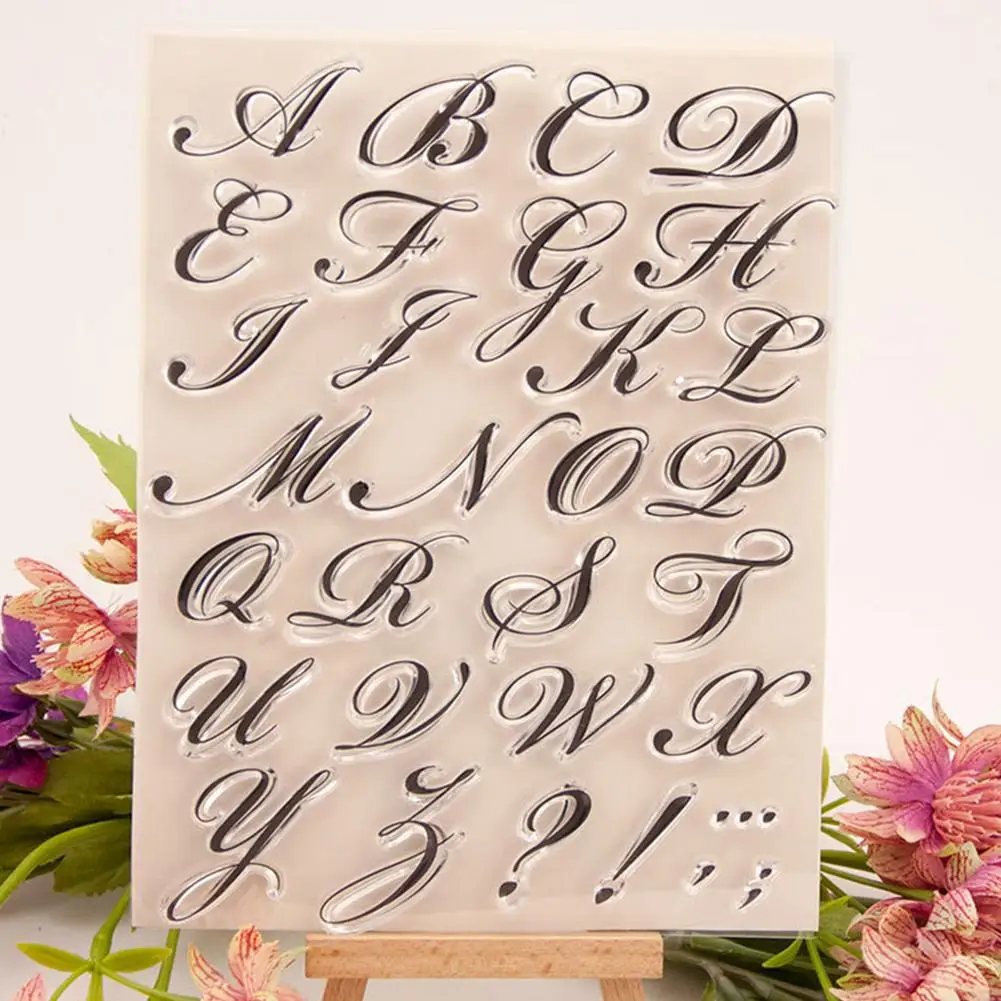 A B C D
E F G H
I J K L
M N O P
Q R S T
U V W X
Y Z ? ! ...
, ;